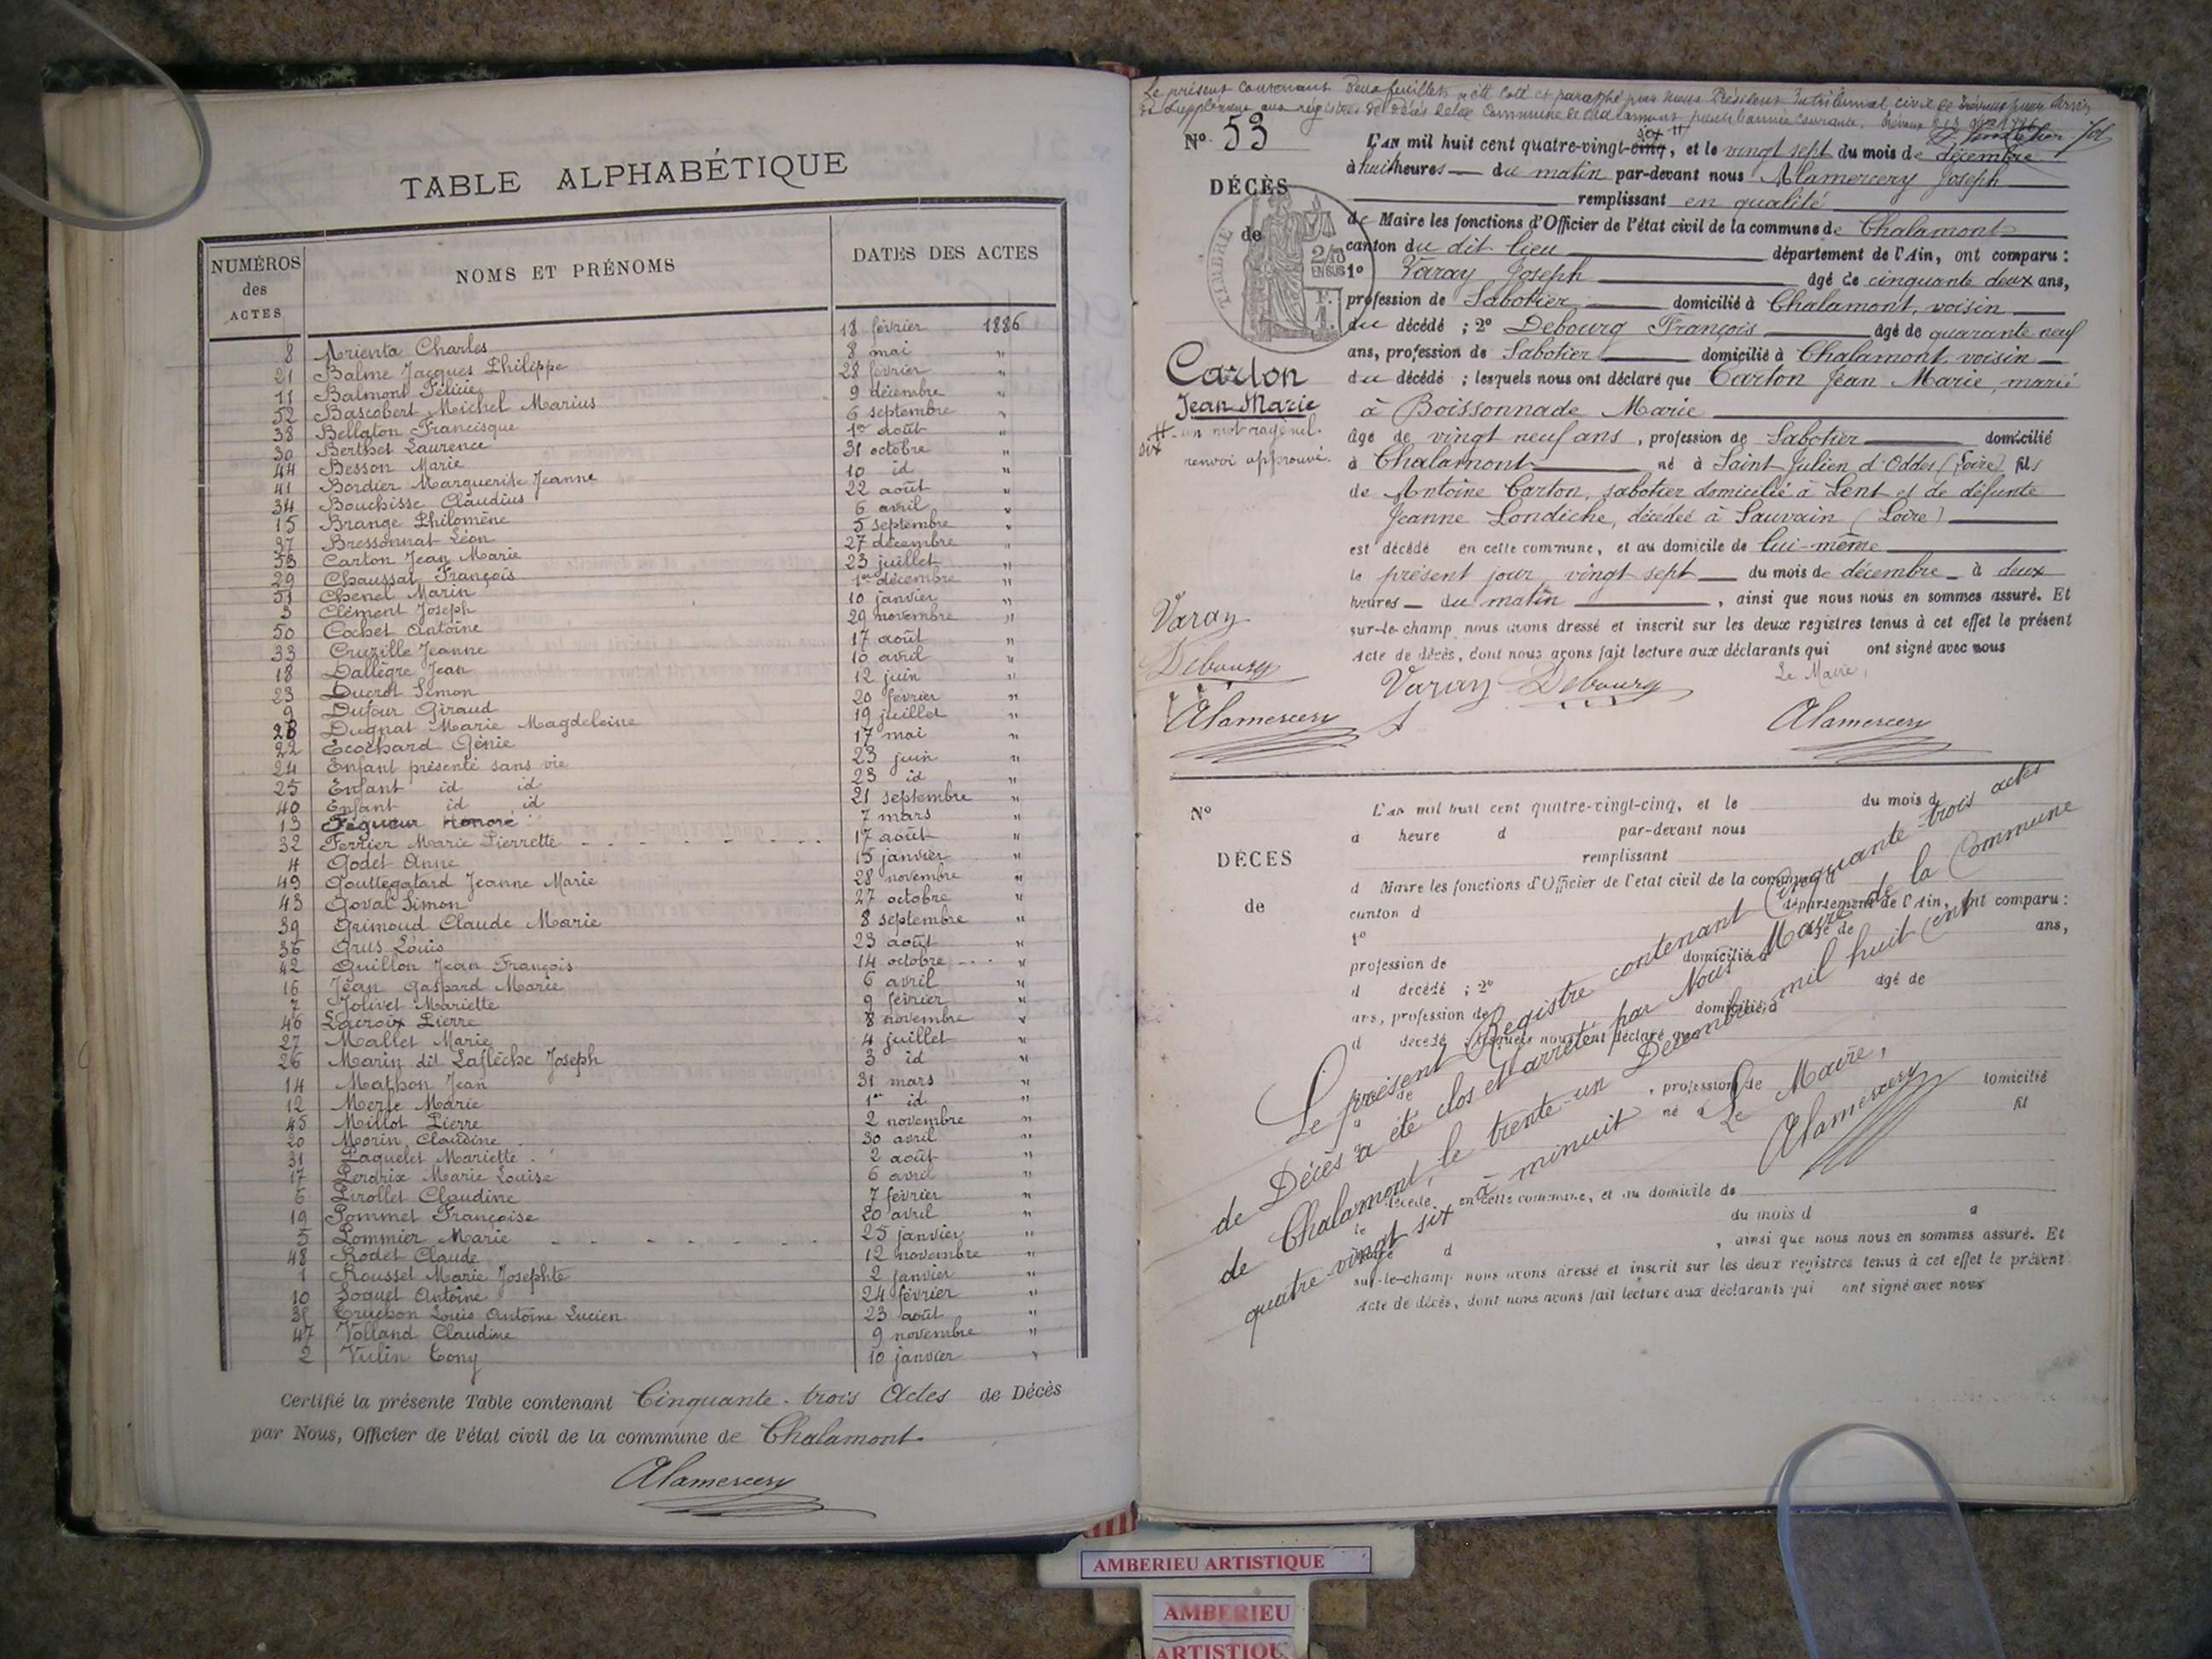 TABLE ALPHABÉTIQUE
NUMÉROS des ACTES NOMS ET PRÉNOMS DATES DES ACTES
8 Arienta Charles 18 février 1886
21 Balme Jacques Philippe 8 mai "
11 Balmont Félicie 28 février "
52 Bascobert Michel Marius 9 décembre "
38 Bellaton Francisque 6 septembre "
30 Berthet Laurence 1er août "
44 Besson Marie 31 octobre "
41 Bordier Marguerite Jeanne 10 id "
34 Bouchisse Claudius 22 août "
15 Brange Philomène 6 avril "
37 Bressonnat Léon 5 septembre "
53 Carton Jean Marie 27 décembre "
29 Chaussat François 23 juillet "
51 Chenel Marin 1er décembre "
3 Clément Joseph 10 janvier "
50 Cochet Antoine 29 novembre "
33 Cruzille Jeanne 17 août "
18 Dallègre Jean 10 avril "
23 Ducrot Simon 12 juin "
9 Dufour Giraud 20 février "
28 Dugnat Marie Magdeleine 19 juillet "
22 Ecochard Génie 17 mai "
24 Enfant présenté sans vie 23 juin "
25 Enfant id id 23 id "
40 Enfant id id 21 septembre "
13 Fégueur Honoré 7 mars "
32 Ferrier Marie Pierrette 17 août "
4 Godet Anne 15 janvier "
49 Gouttegatard Jeanne Marie 28 novembre "
43 Goval Simon 27 octobre "
39 Grimoud Claude Marie 8 septembre "
36 Grus Louis 23 août "
42 Guillon Jean François 14 octobre "
16 Jean Gaspard Marie 6 avril "
7 Jolivet Mariette 9 février "
46 Lacroix Pierre 8 novembre "
27 Mallet Marie 4 juillet "
26 Marin dit Laflèche Joseph 3 id "
14 Mathon Jean 31 mars "
12 Merle Marie 1er id "
45 Millot Pierre 2 novembre "
20 Morin Claudine 30 avril "
31 Paquelet Mariette 2 août "
17 Perdrix Marie Louise 6 avril "
6 Pirollet Claudine 7 février "
19 Pommet Françoise 20 avril "
5 Pommier Marie 25 janvier "
48 Rodet Claude 12 novembre "
1 Rousset Marie Josephte 2 janvier "
10 Soquet Antoine 24 février "
35 Truchon Louis Antoine Lucien 23 août "
47 Volland Claudine 9 novembre "
2 Vulin Tony 10 janvier "
Certifié la présente Table contenant Cinquante-trois Actes de Décès
par Nous, Officier de l'état civil de la commune de Chalamont.
Alamercery
Le présent contenant deux feuillets a été coté et paraphé par nous Président du tribunal civil de Trévoux pour servir
de supplément aux régistres de décès de la Commune de Chalamont pour l'année courante.
No 53
DÉCÈS
de
TIMBRE
2/10 EN SUS
Carton
Jean Marie
un mot rayé nul.
six renvoi approuvé.
Varay
Debourg
Alamercery
six
L'an mil huit cent quatre-vingt-cinq, et le vingt sept du mois de décembre
à huit heures du matin par-devant nous Alamercery Joseph
remplissant en qualité
de Maire les fonctions d'Officier de l'état civil de la commune de Chalamont
canton du dit lieu département de l'Ain, ont comparu :
1o Varay Joseph âgé de cinquante deux ans,
profession de Sabotier domicilié à Chalamont, voisin
du décédé ; 2o Debourg François âgé de quarante neuf
ans, profession de Sabotier domicilié à Chalamont, voisin
du décédé ; lesquels nous ont déclaré que Carton Jean Marie, marié
à Boissonnade Marie
âgé de vingt neuf ans, profession de Sabotier domicilié
à Chalamont né à Saint Julien d'Oddes (Loire) fils
de Antoine Carton, sabotier domicilié à Lent et de défunte
Jeanne Londiche, décédée à Sauvain (Loire)
est décédé en cette commune, et au domicile de lui-même
le présent jour vingt sept du mois de décembre à deux
heures du matin, ainsi que nous nous en sommes assuré. Et
sur-le-champ nous avons dressé et inscrit sur les deux registres tenus à cet effet le présent
Acte de décès, dont nous avons fait lecture aux déclarants qui ont signé avec nous
Le Maire,
Varay Debourg Alamercery
No
DÉCÈS
de
L'an mil huit cent quatre-vingt-cinq, et le du mois d
à heure d par-devant nous
remplissant
d Maire les fonctions d'Officier de l'état civil de la commune d
canton d département de l'Ain, ont comparu :
1o âgé de ans,
profession de domicilié à
d décédé ; 2o âgé de
ans, profession de domicilié à
d décédé ; lesquels nous ont déclaré que
de , profession de domicilié
à né à fil
décédé en cette commune, et au domicile de
le du mois d à
heure d , ainsi que nous nous en sommes assuré. Et
sur-le-champ nous avons dressé et inscrit sur les deux registres tenus à cet effet le présent
Acte de décès, dont nous avons fait lecture aux déclarants qui ont signé avec nous
Le présent Registre contenant Cinquante trois actes
de Décès a été clos et arrêté par Nous Maire de la Commune
de Chalamont, le trente-un Décembre mil huit cent
quatre-vingt six à minuit
Le Maire,
Alamercery
AMBERIEU ARTISTIQUE
AMBERIEU
ARTISTIQUE